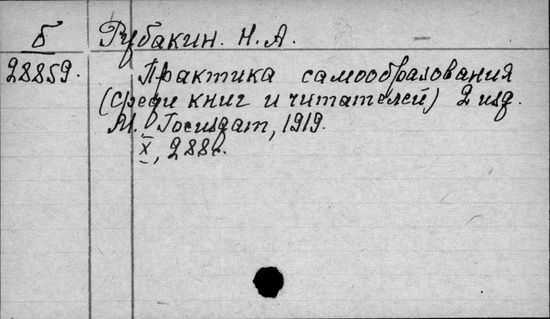 Б Рубакин. Н. А.
28859. Практика самообразования
(среди книг и читателей) 2 изд.
М. Госиздат, 1919.
X, 288с.